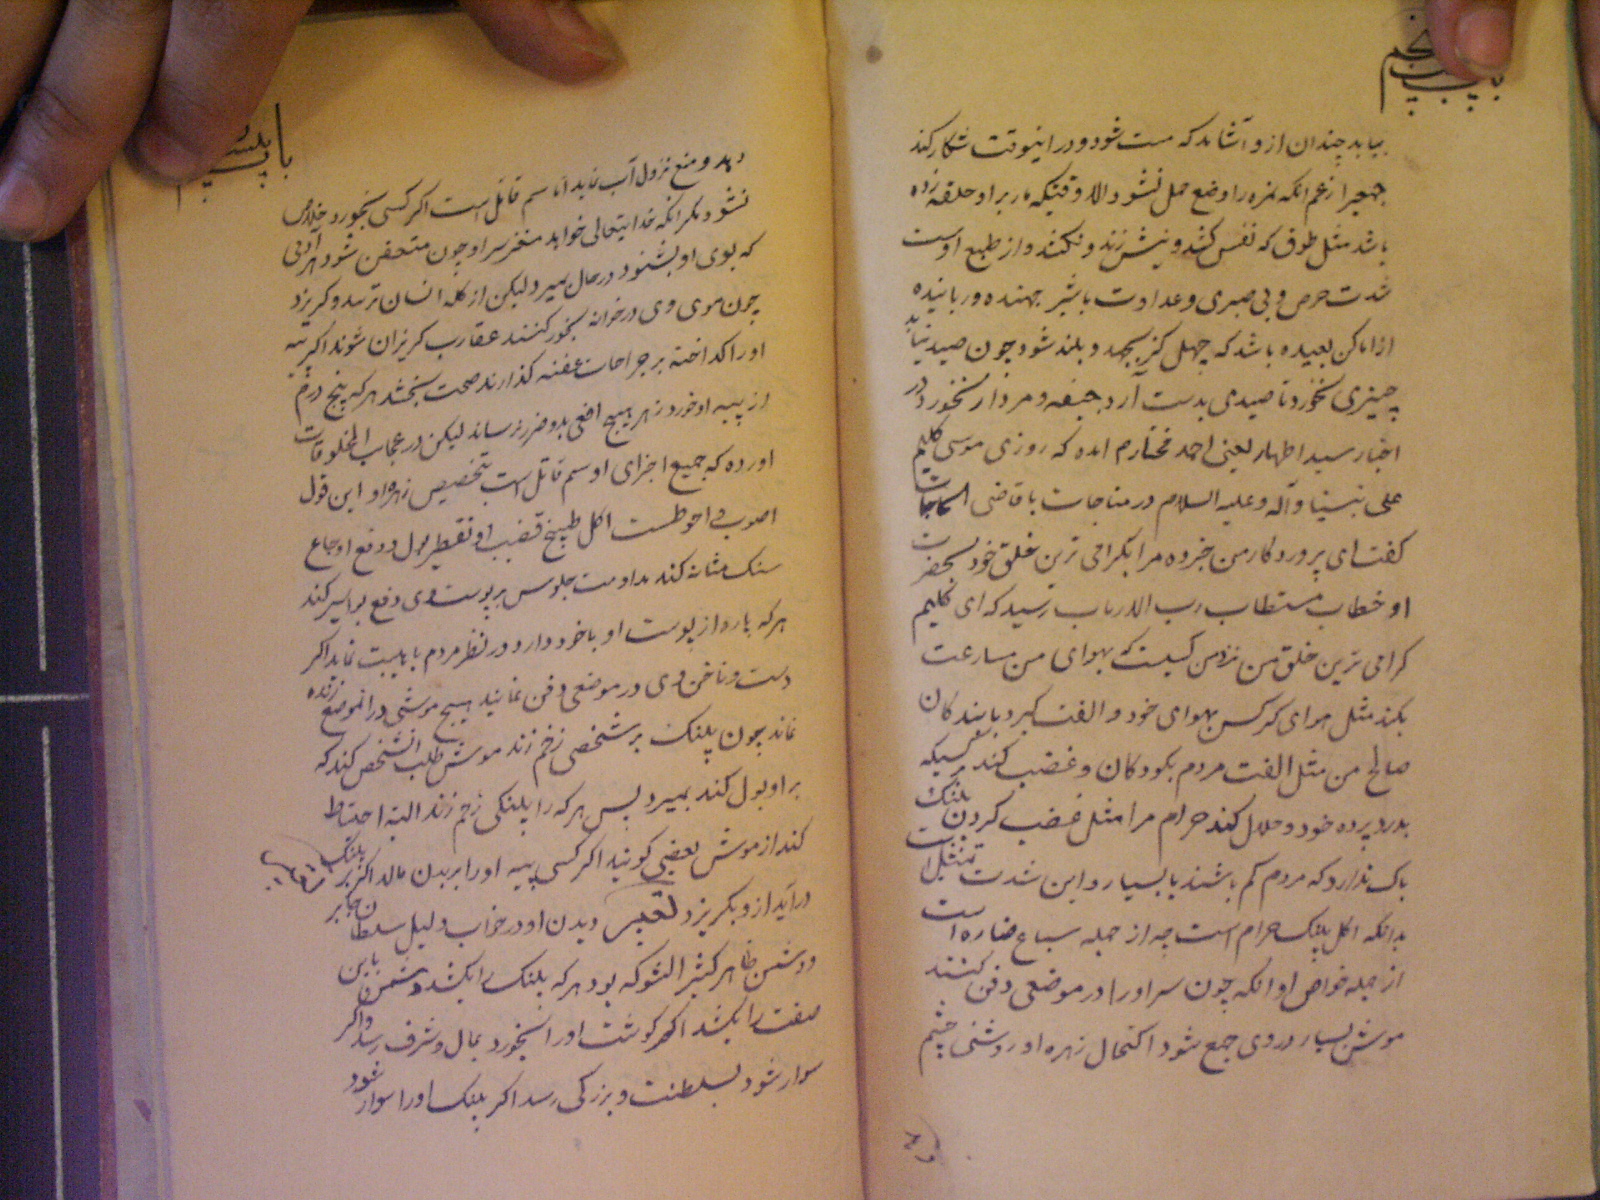 بیابد چندان ازو آشامد که مست شود و در اینوقت شکار کند
جهیرا زعم انکه نمره را وضع حمل نشود الا وقتیکه مار بر او حلقه زده
باشد مثل طوق که نفس کشد و نیش زند و نکشد و از طبع اوست
شدت حرص و بی صبری و عداوت با بشر جهنده و رباینده
از اماکن بعیده باشد که چهل کز بجهد و بلند شود چون صید نیابد
چیزی نخورد تا صیدی بدست آرد جیفه و مردار نخورد در
اخبار سید اطهار یعنی احمد مختارم امده که روزی موسی کلیم
علی نبینا و آله و علیه السلام در مناجات با قاضی الحاجات
کفت ای پروردکار من خبر ده مرا بکرامی ترین خلق خود بحضرت
او خطاب مستطاب رب الارباب رسید که ای کلیم
کرامی ترین خلق من نزد من کسیست که بهوای من مسارعت
بکند مثل هوای کرکس بهوای خود و الفت کیرد با بندکان
صالح من مثل الفت مردم بکودکان و غضب کند بر کسیکه
بدرد پرده خود و حلال کند حرام مرا مثل غضب کردن پلنک
باک ندارد که مردم کم باشند یا بسیار و این شدت
بدانکه اکل پلنک حرام است چه از جمله سباع ضاره است
از جمله خواص او انکه چون سر او را در موضعی دفن کنند
موش بسیار در وی جمع شود اکتحال زهره او روشنی چشم
دهد و منع نزول آب نماید اما سم قاتل است اکر کسی بخورد خلاص
نشود مکر انکه خدایتعالی خواهد مغز سر او چون متعفن شود هر آدمی
که بوی او بشنود در حال میرد لیکن از کله انسان ترسد و کریزد
چون موی وی در خانه بخور کنند عقارب کریزان شوند اکر پیه
او را کداخته بر جراحات عفنه کذارند صحت بخشد هر که پنج درم
از پیه او خورد زهر هیچ افعی بدو ضرر نرساند لیکن در عجایب المخلوقات
اورده که جمیع اجزای او سم قاتل است بتخصیص زهره او این قول
اصوب و احوطست اکل طبیخ قضیب او تقطیر بول و دفع اوجاع
سنک مثانه کند مداومت جلوس بر پوست وی دفع بواسیر کند
هر که پاره از پوست او با خود دارد در نظر مردم با هیبت نماید اکر
دست و ناخن وی در موضعی دفن نمایند هیچ موشی در انموضع زنده
نماند چون پلنک بر شخصی زخم زند موش طلب انشخص کند که
بر او بول کند بمیرد پس هر که را پلنکی زخم زند البته احتیاط
کند از موش بعضی کویند اکر کسی پیه او را بر بدن مالد اکر بر پلنک
درآید ازو بکریزد تعبیر دیدن او در خواب دلیل سلطان جابر
و دشمن ظاهر کثیر الشوکه بود هر که پلنک را بکشد دشمن باین
صفت را بکشد اکر کوشت او را بخورد بمال و شرف رسد و اکر
سوار شود بسلطنت و بزرکی رسد اکر پلنک او را سوار شود